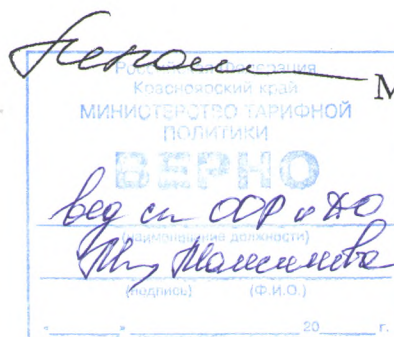 Российская Федерация
М
Красноярский край
МИНИСТЕРСТВО ТАРИФНОЙ
ПОЛИТИКИ
ВЕРНО
вед сп ООР и ДО
(наименование должности)
(подпись) (Ф.И.О.)
"____" ____________ 20____ г.